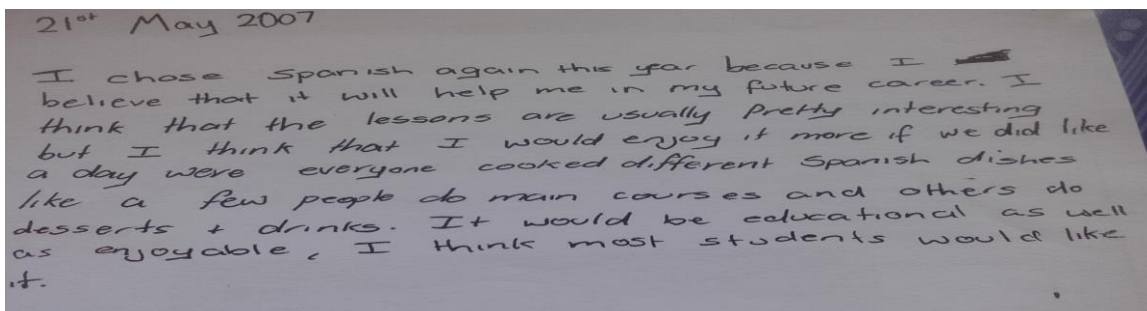 21st May 2007
I chose Spanish again this year because I
believe that it will help me in my future career. I
think that the lessons are usually Pretty interesting
but I think that I would enjoy it more if we did like
a day were everyone cooked different Spanish dishes
like a few people do main courses and others do
desserts + drinks. It would be educational as well
as enjoyable, I think most students would like
it.